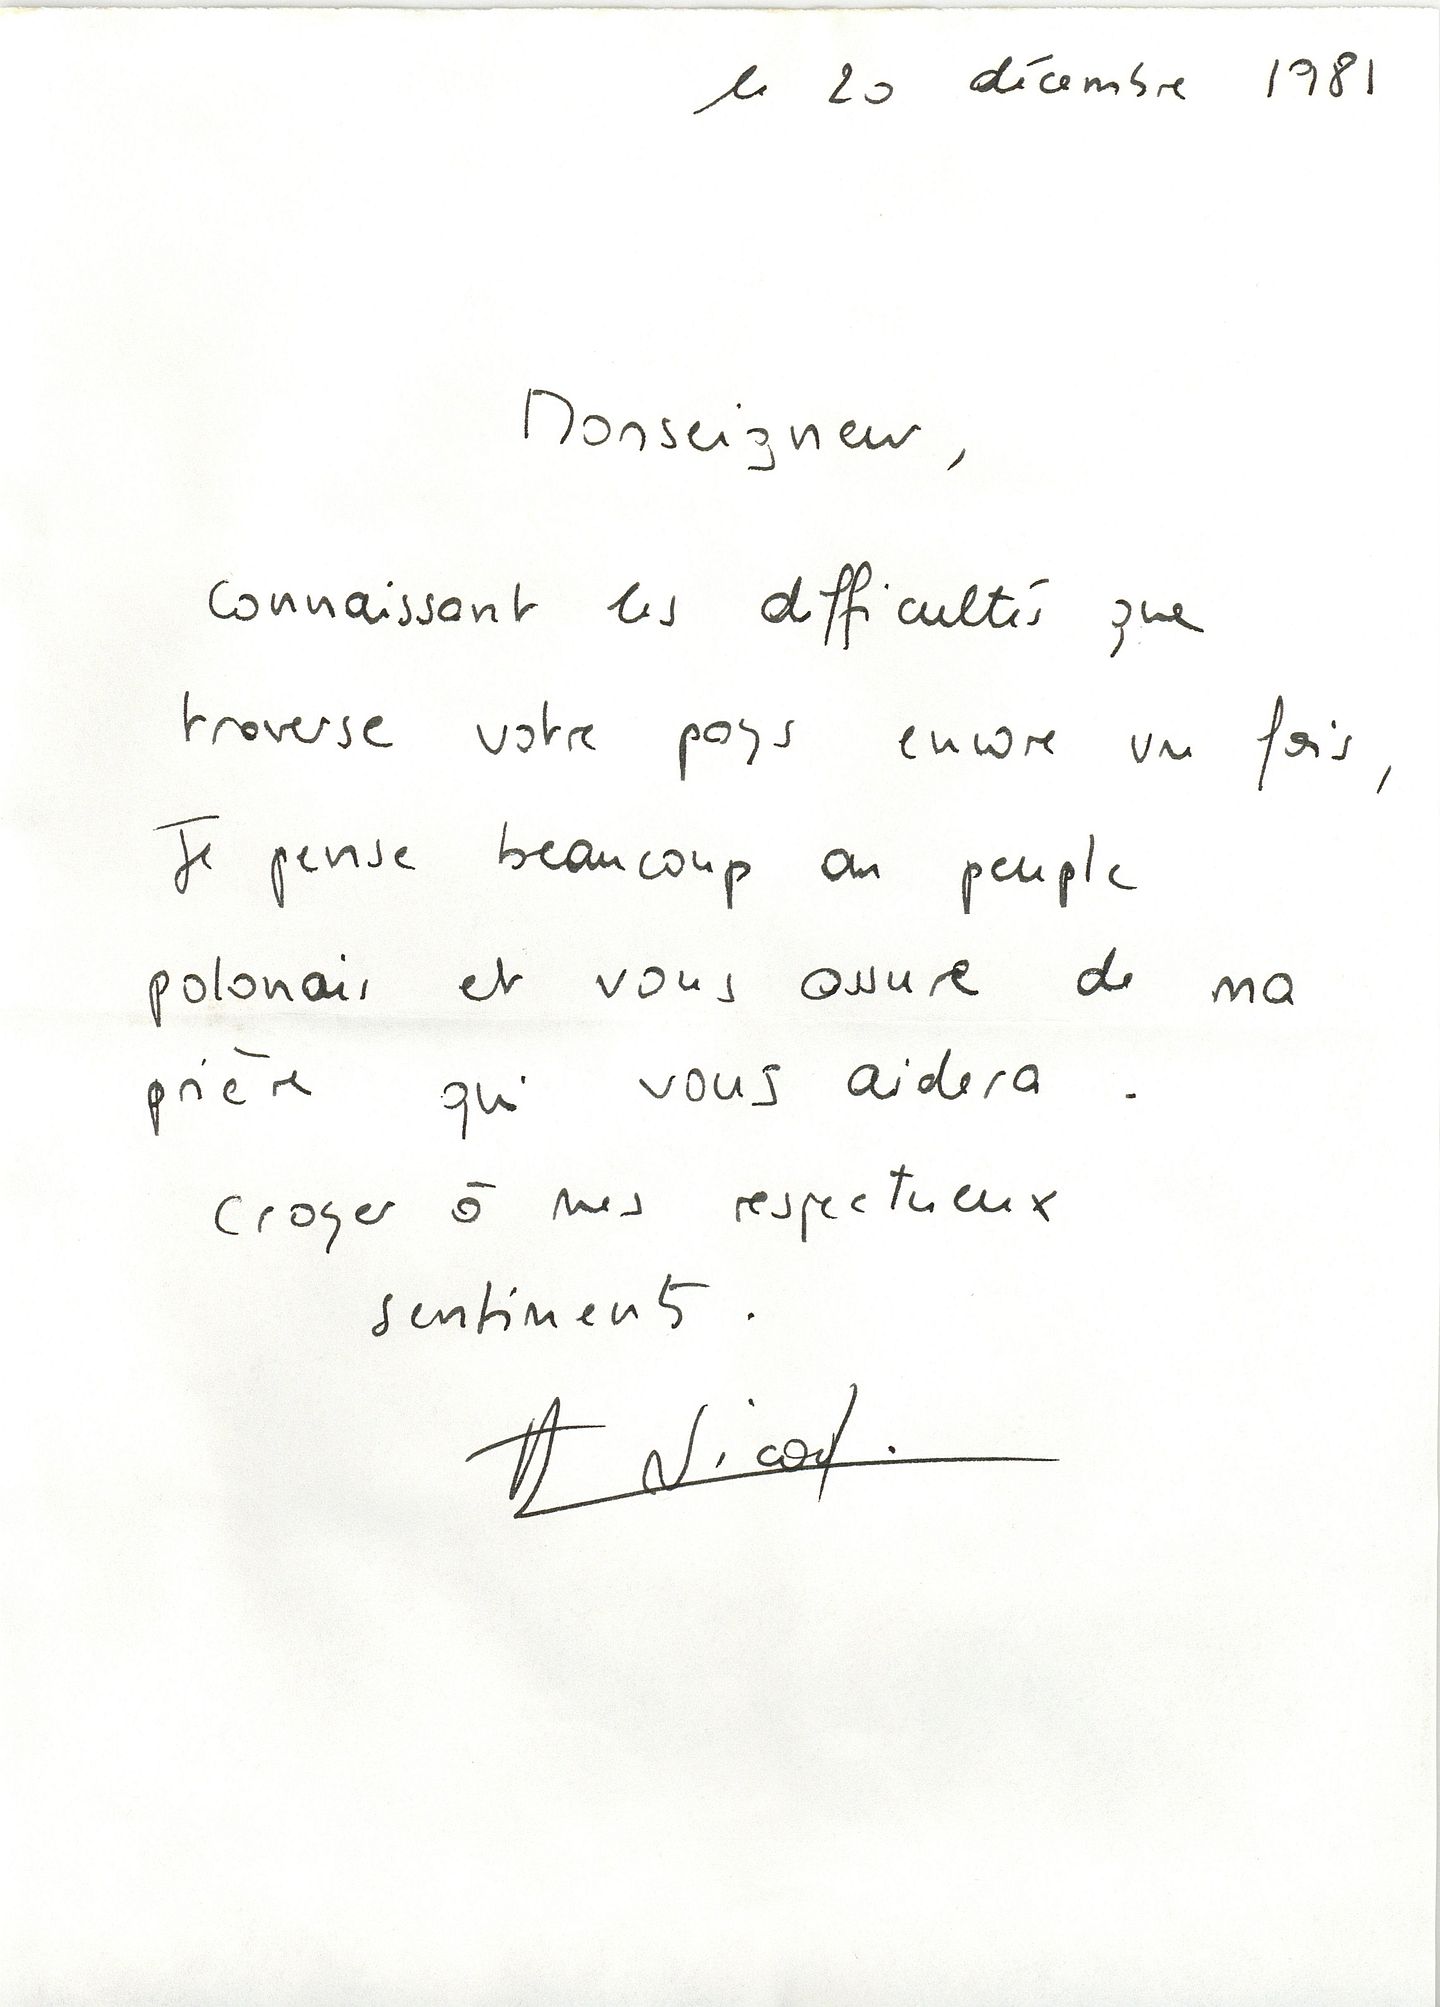 le 20 décembre 1981
Monseigneur,
connaissant les difficultés que
traverse votre pays encore un fois,
Je pense beaucoup au peuple
polonais et vous assure de ma
prière qui vous aidera.
Croyer à mes respectueux
sentiments.
A Nicod.